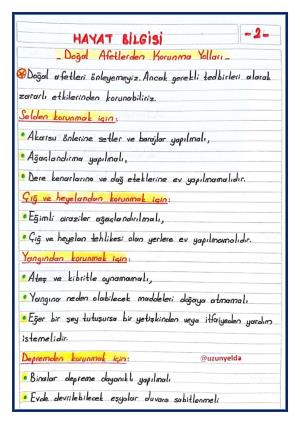 HAYAT BİLGİSİ
-2-
- Doğal Afetlerden Korunma Yolları -
Doğal afetleri önleyemeyiz. Ancak gerekli tedbirleri alarak
zararlı etkilerinden korunabiliriz.
Selden korunmak için:
• Akarsu önlerine setler ve barajlar yapılmalı,
• Ağaçlandırma yapılmalı,
• Dere kenarlarına ve dağ eteklerine ev yapılmamalıdır.
Çığ ve heyelandan korunmak için:
• Eğimli araziler ağaçlandırılmalı,
• Çığ ve heyelan tehlikesi olan yerlere ev yapılmamalıdır.
Yangından korunmak için:
• Ateş ve kibritle oynamamalı,
• Yangına neden olabilecek maddeleri doğaya atmamalı
• Eğer bir şey tutuşursa bir yetişkinden veya itfaiyeden yardım
istemelidir.
Depremden korunmak için:
@uzunyelda
• Binalar depreme dayanıklı yapılmalı
• Evde devrilebilecek eşyalar duvara sabitlenmeli